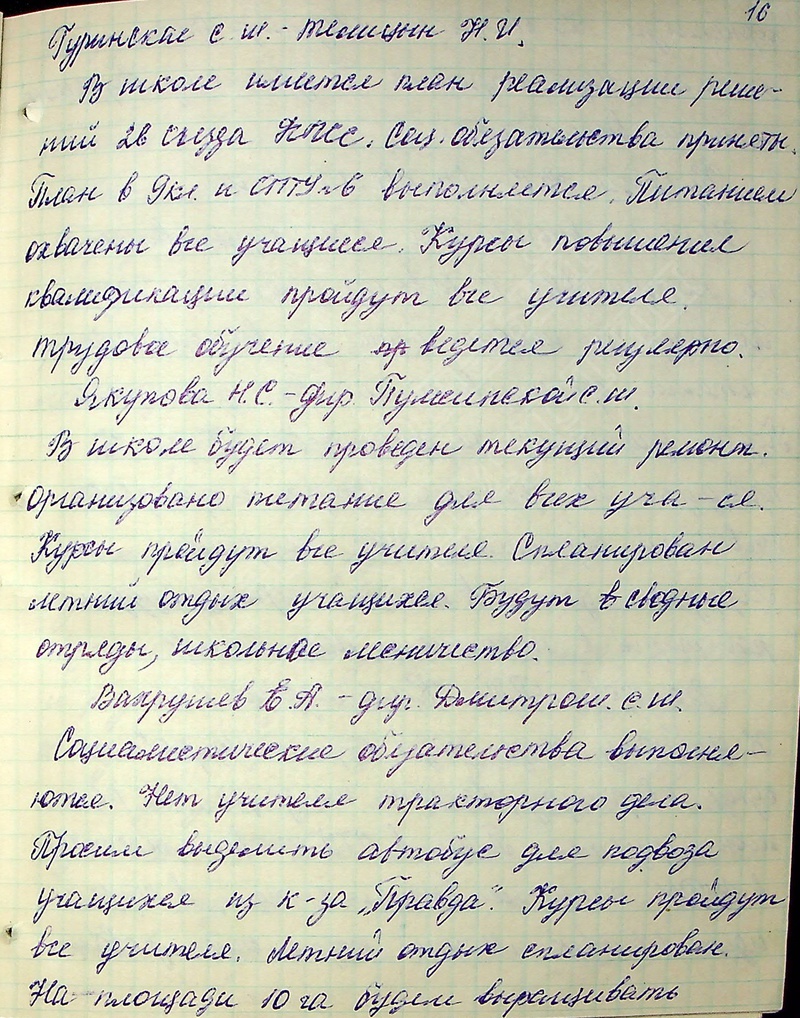 16
Гуринская с.ш. - Телицын Н.И.
В школе имеется план реализации реше-
ний 26 съезда КПСС. Соц. обязательства приняты.
План в 9 кл. и СПТУ №6 выполняется. Питанием
охвачены все учащиеся. Курсы повышения
квалификации пройдут все учителя.
Трудовое обучение ведется регулярно.
Якупова Н.С. - дир. с.ш.
В школе будет проведен текущий ремонт.
Организовано питание для всех уча-ся.
Курсы пройдут все учителя. Спланирован
летний отдых учащихся. Будут сводные
отряды, школьное лесничество.
Вахрушев Е.А. - дир. Дмитрош. с.ш.
Социалистические обязательства выполня-
ются. Нет учителя тракторного дела.
Просим выделить автобус для подвоза
учащихся из к-за „Правда". Курсы пройдут
все учителя. Летний отдых спланирован.
На площади 10 га будем выращивать